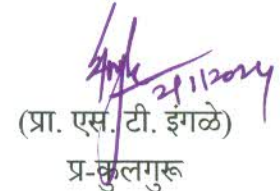 2/1/2024
(प्रा. एस. टी. इंगळे)
प्र-कुलगुरू